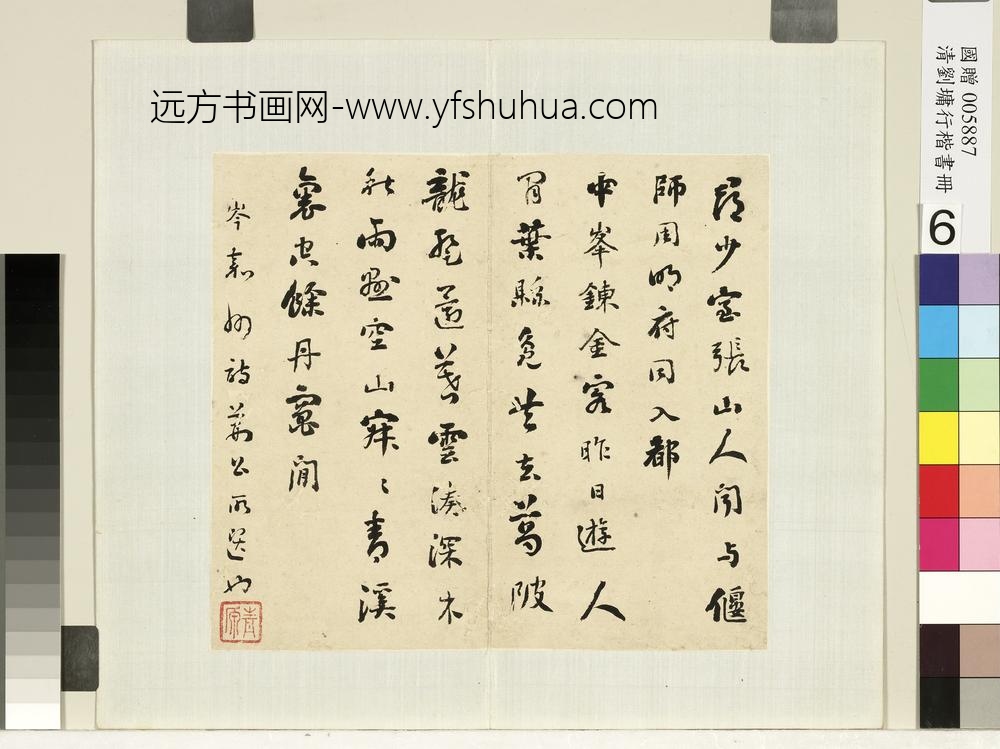 远方书画网-www.yfshuhua.com
尋少室張山人聞与偃
師周明府同入都
中峯鍊金客昨日遊人
間葉縣鳧共去葛陂
龍暫還春雲湊深水
秋雨懸空山寂〻青溪
上空餘丹竈閒
岑嘉州詩荊公所選也
國贈 005887
清劉墉行楷書冊
6